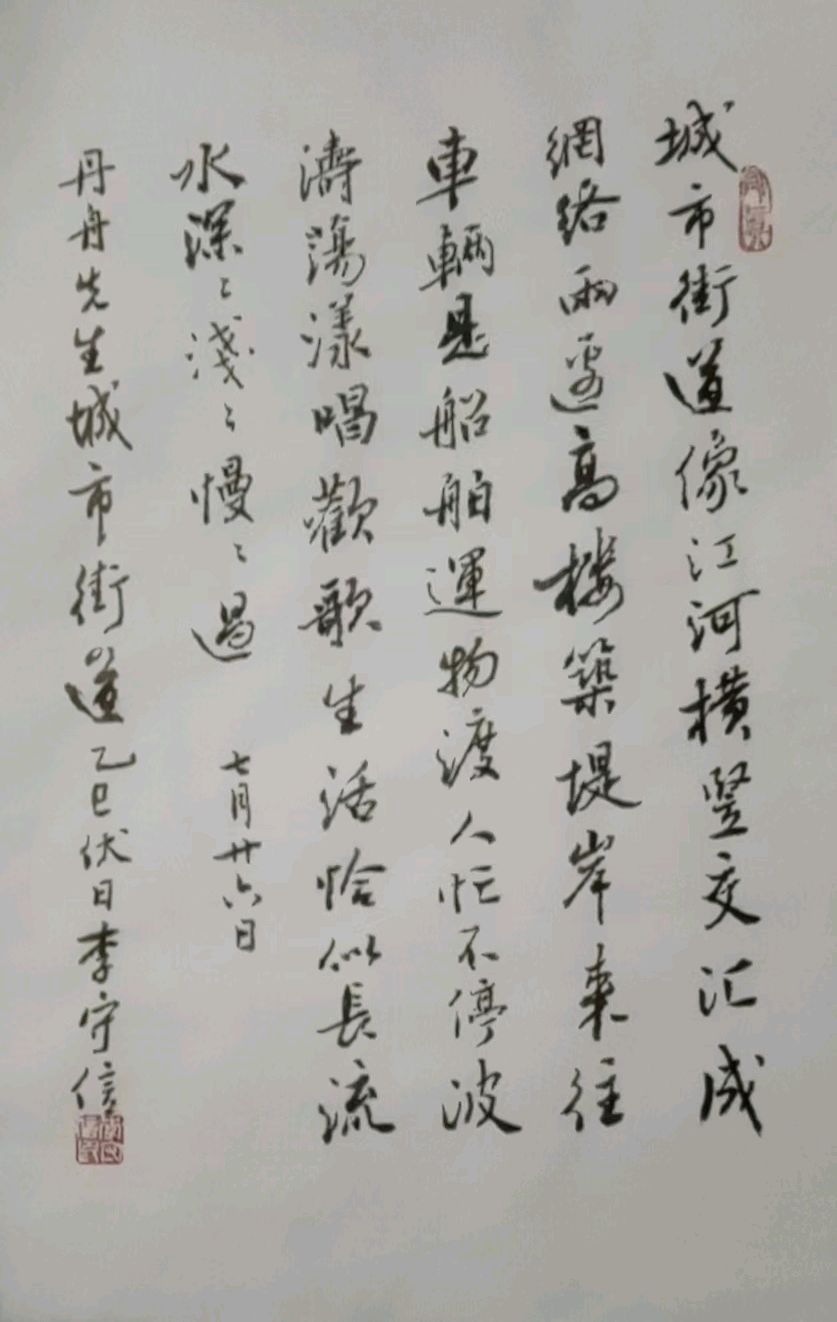 城市街道像江河横竖交汇成
網络兩邊高楼築堤岸来往
車輛是船舶運物渡人忙不停波
濤蕩漾唱歡歌生活恰似長流
水深〻淺〻慢〻過
七月廿六日
丹舟先生城市街道乙巳伏日李守信